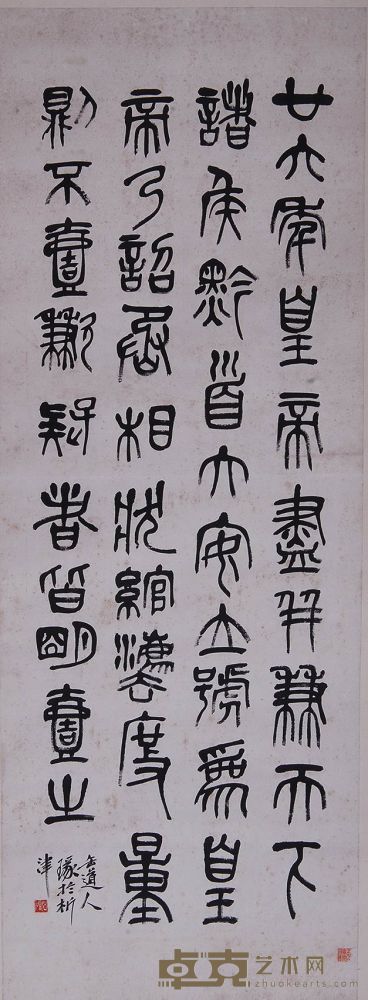 廿六年皇帝盡并兼天下
諸侯黔首大安立號為皇
帝乃詔丞相狀綰灋度量
則不壹歉疑者皆明壹之
道人
於析
津
卓克艺术网
zhuokearts.com